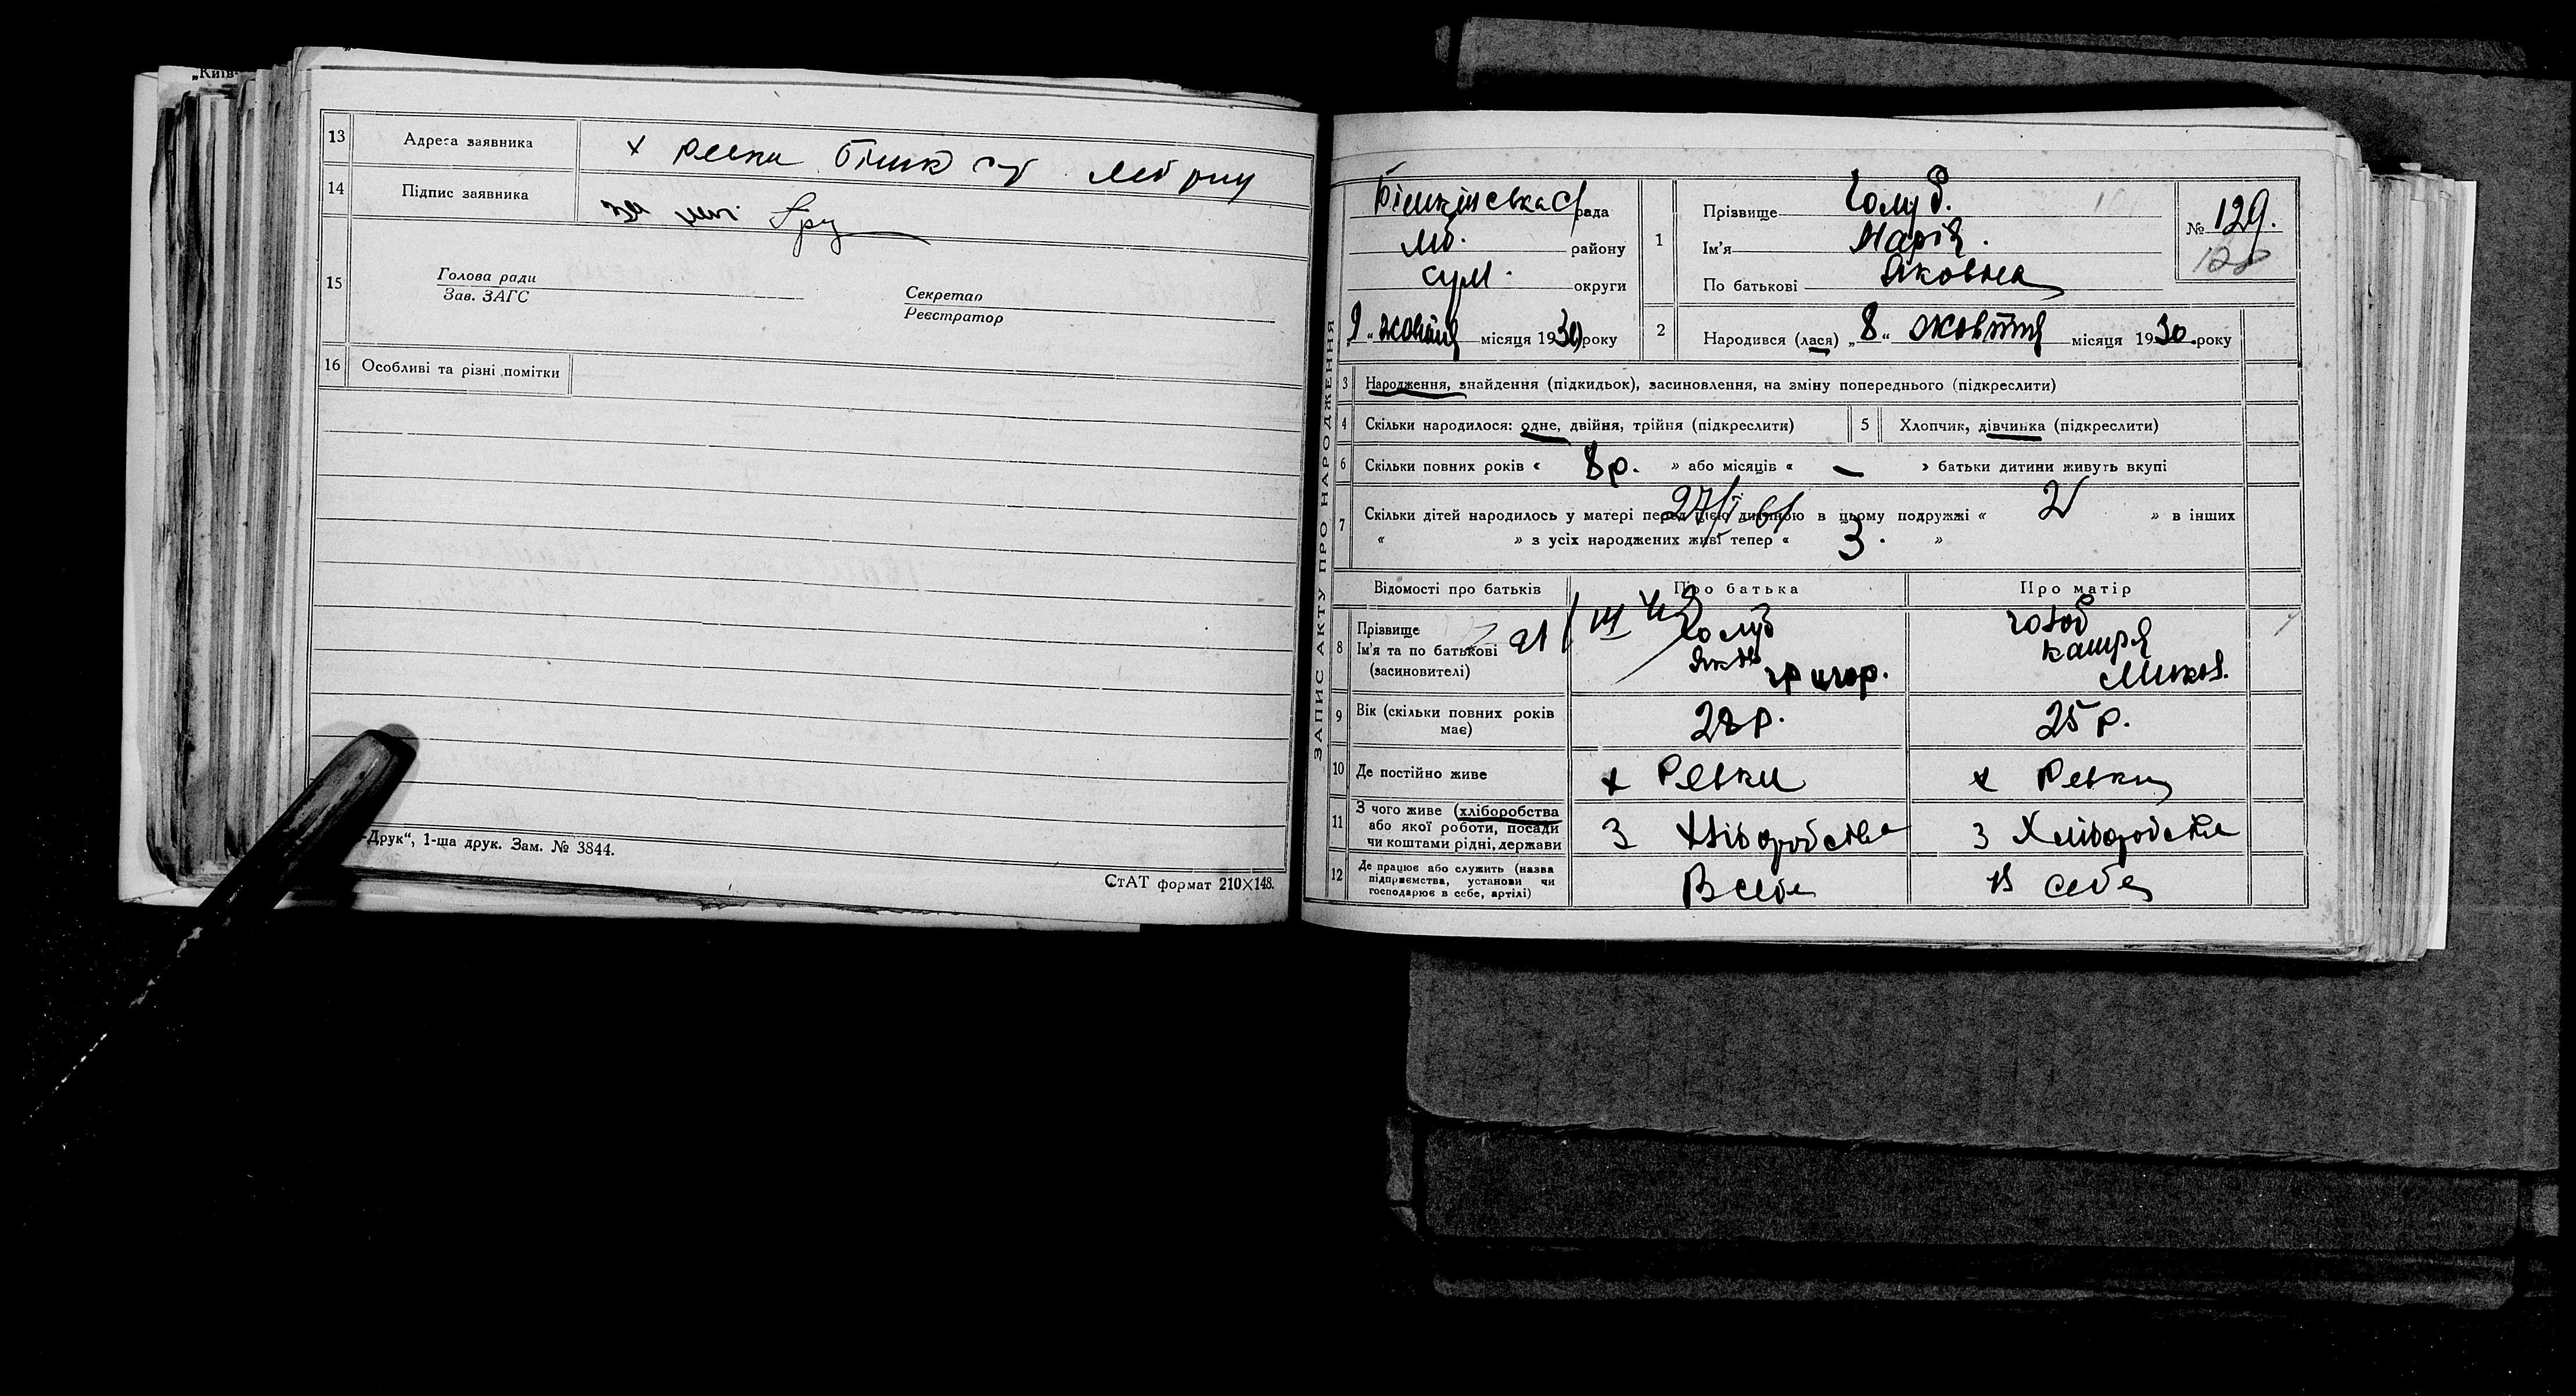 „Київ-
13 Адреса заявника х Ревки Бішк с/р Леб рну
14 Підпис заявника за
15 Голова ради
Зав. ЗАГС
Секретар
Реєстратор
16 Особливі та різні помітки
-Друк“, 1-ша друк. Зам. № 3844.
СтАТ формат 210×148.
ЗАПИС АКТУ ПРО НАРОДЖЕННЯ
Бішкінська с/рада
Леб. району
Сум. округи
„9“ жовтня місяця 1930 року
1 Прізвище Голуб.
Ім'я Марія.
По батькові Яковна
№ 129.
128
2 Народився (лася) „8“ жовтня місяця 1930. року
3 Народження, знайдення (підкидьок), засиновлення, на зміну попереднього (підкреслити)
4 Скільки народилося: одне, двійня, трійня (підкреслити)
5 Хлопчик, дівчинка (підкреслити)
6 Скільки повних років « 8 р. » або місяців « — » батьки дитини живуть вкупі
7 Скільки дітей народилось у матері перед цією дитиною в цьому подружжі « 2 » в інших
« » з усіх народжених живі тепер « 3. »
Відомості про батьків Про батька Про матір
8 Прізвище
Ім'я та по батькові
(засиновителі)
21/III 42
Голуб
Яків
Григор.
Голуб
Катря
Микол.
9 Вік (скільки повних років має) 28 р. 25 р.
10 Де постійно живе х Ревки х Ревки
11 З чого живе (хліборобства
або якої роботи, посади
чи коштами рідні, держави
З Хліборобства З Хліборобства
12 Де працює або служить (назва
підприємства, установи чи
господарює в себе, артілі)
В себе В себе